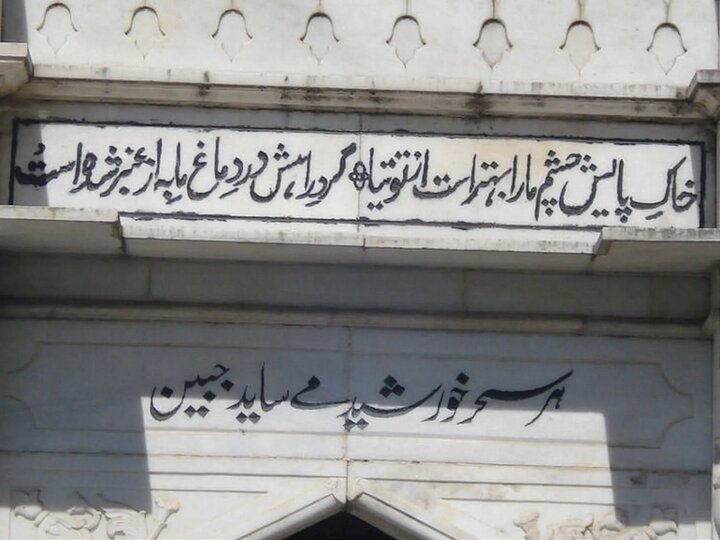 خاکِ پایش چشم ما را بہتر است از توتیا ❁ گردِ راہش در دماغ ما بہ از عنبر شدہ است
ہر سحر خورشید مے ساید جبین